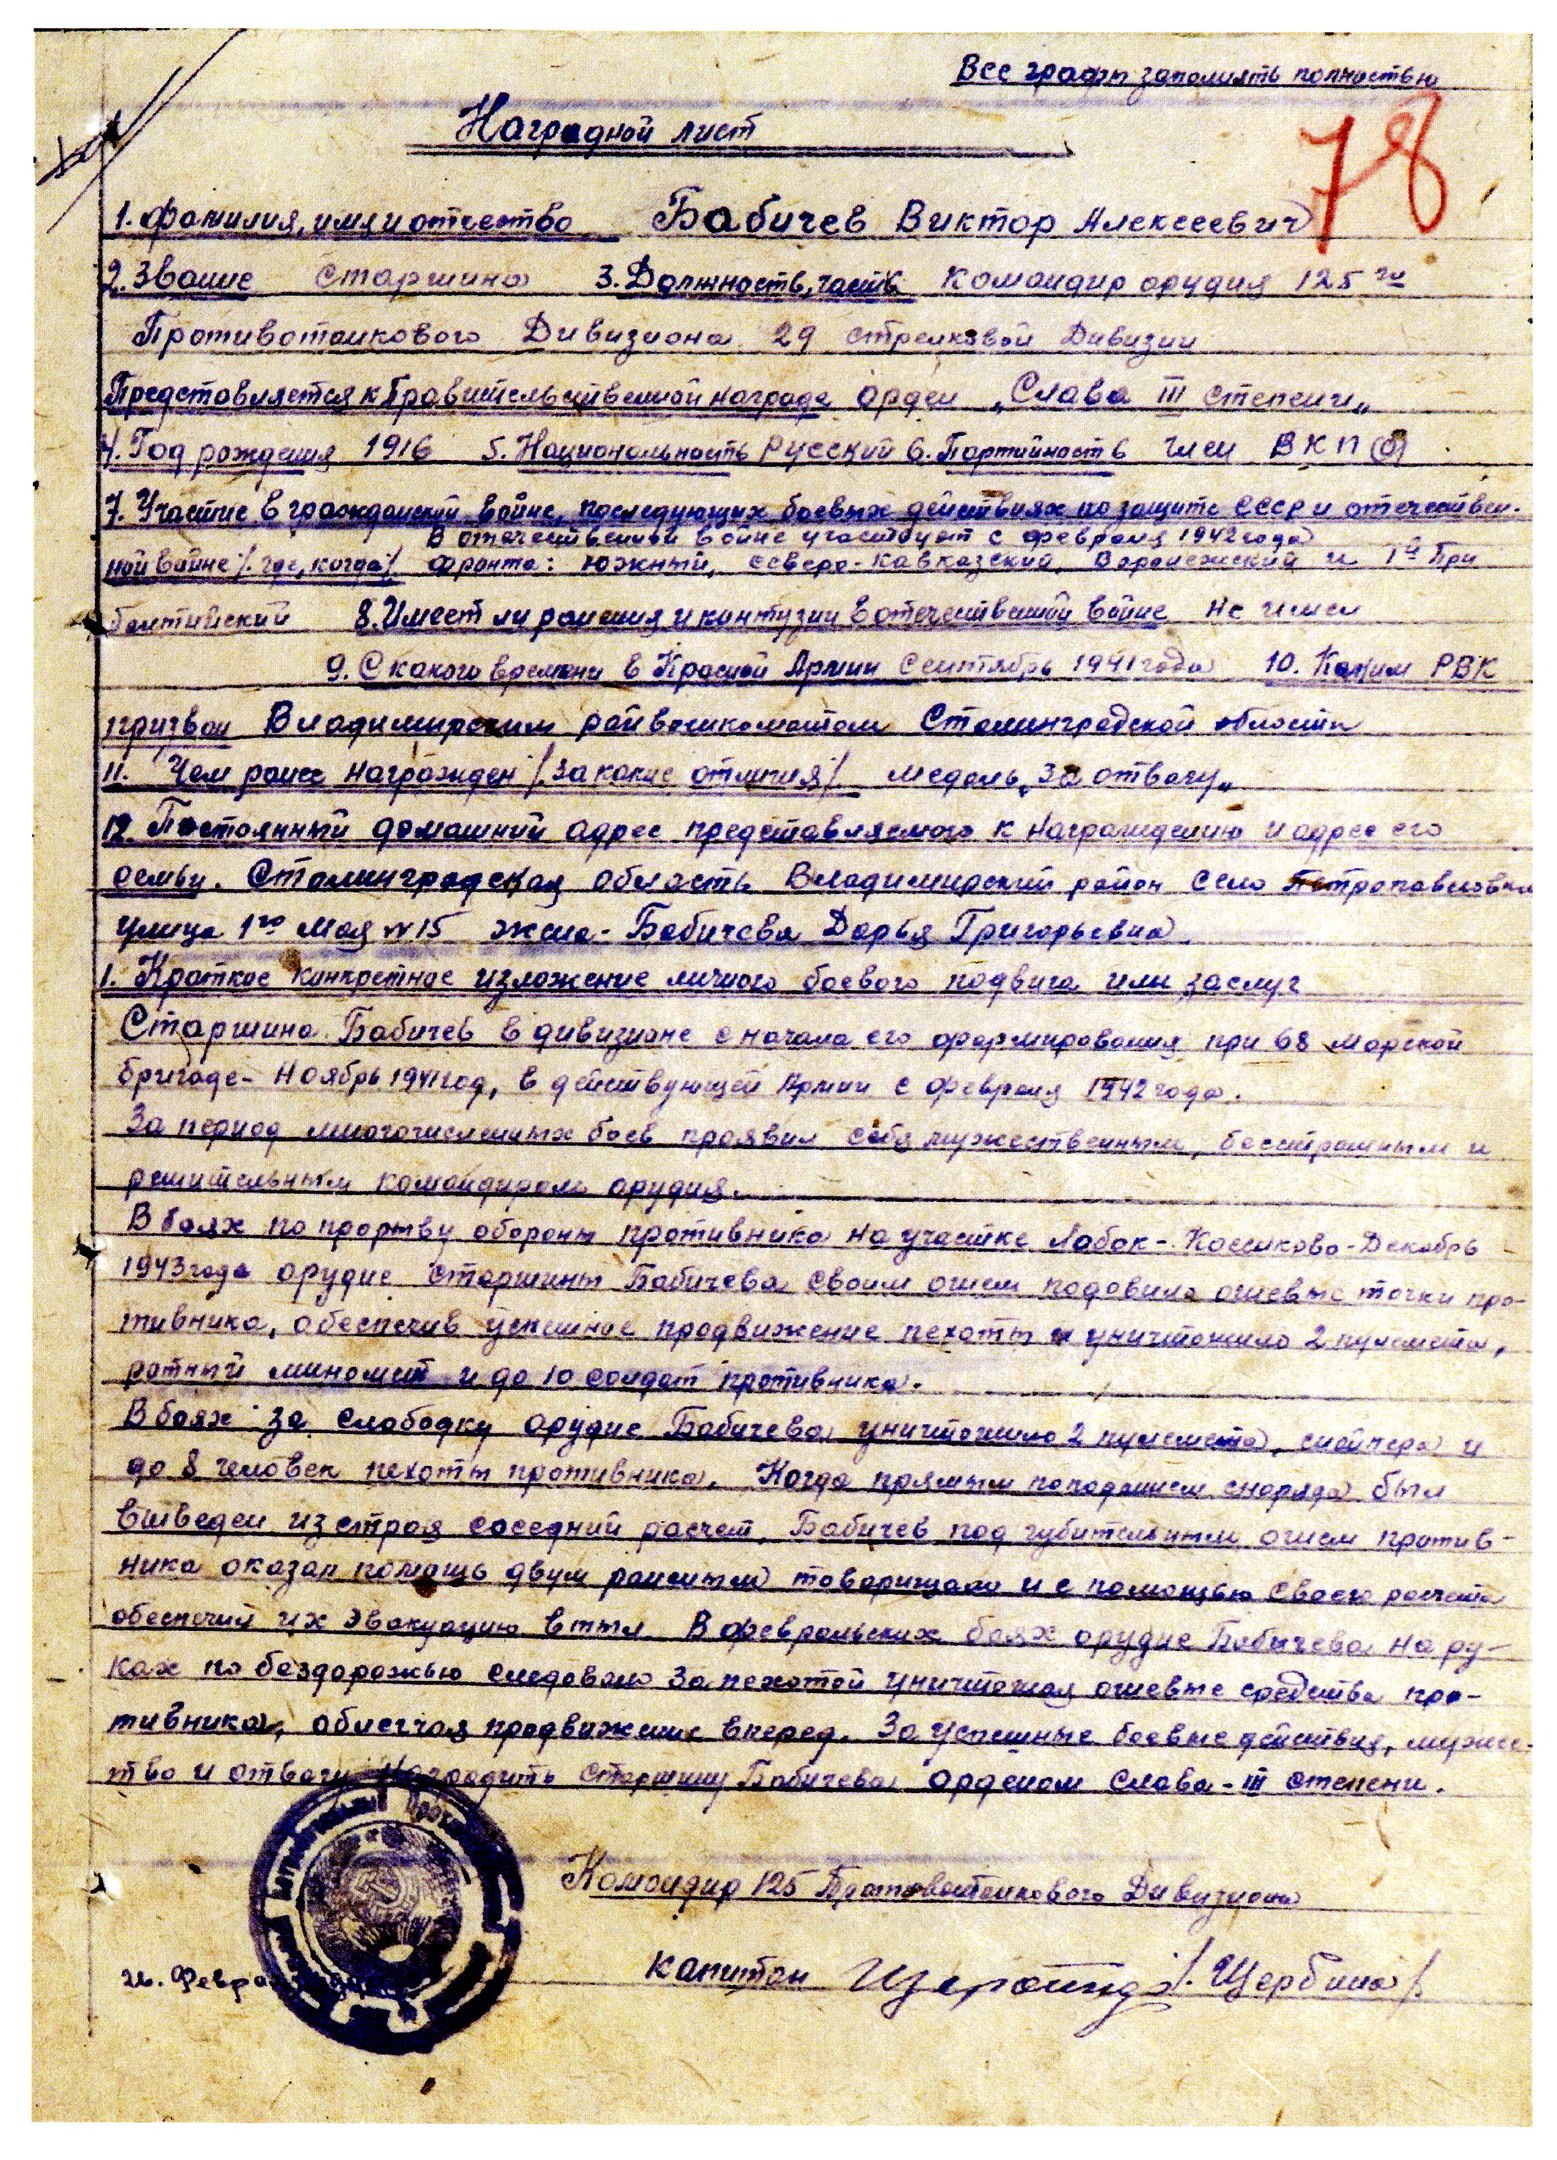 Все графы заполнять полностью
78
Наградной лист
1. Фамилия, имя и отчество Бабичев Виктор Алексеевич
2. Звание Старшина 3. Должность, часть Командир орудия 125 го
Противотанкового Дивизиона 29 стрелковой Дивизии
Представляется к Правительственной награде орден „Слава III степени„
4. Год рождения 1916 5. Национальность Русский 6. Партийность член ВКП(б)
7. Участие в гражданской войне, последующих боевых действиях по защите СССР и отечествен-
В отечественной войне участвует с февраля 1942 года
ной войне /где, когда/ фронта: Южный, северо-Кавказский, Воронежский и 1й При
балтийский 8. Имеет ли ранения и контузии в отечественной войне не имел
9. С какого времени в Красной Армии Сентябрь 1941 года 10. Каким РВК
призван Владимирским райвоенкоматом Сталинградской области
11. Чем ранее награжден /за какие отличия/ медаль „За отвагу„
12. Постоянный домашний адрес представляемого к награждению и адрес его
семьи. Сталинградская область Владимирский район село Петропавловка
улица 1го Мая №15 жена - Бабичева Дарья Григорьевна
1. Краткое конкретное изложение личного боевого подвига или заслуг
Старшина Бабичев в дивизионе с начала его формирования при 68 морской
бригаде - Ноябрь 1941 год, в действующей Армии с февраля 1942 года.
За период многочисленных боев проявил себя мужественным, бесстрашным и
решительным командиром орудия.
В боях по прорыву обороны противника на участке Лобок - Кошиково - Декабрь
1943 года орудие старшины Бабичева своим огнем подавило огневые точки про-
тивника, обеспечив успешное продвижение пехоты и уничтожило 2 пулемета,
ротный миномет и до 10 солдат противника.
В боях за Слободку орудие Бабичева уничтожило 2 пулемета, снайпера и
до 8 человек пехоты противника. Когда прямым попаданием снаряда был
выведен из строя соседний расчет, Бабичев под губительным огнем против-
ника оказал помощь двум раненым товарищам и с помощью своего расчета
обеспечил их эвакуацию в тыл. В февральских боях орудие Бабичева на ру-
ках по бездорожью следовало за пехотой уничтожая огневые средства про-
тивника, облегчая продвижение вперед. За успешные боевые действия, мужес-
тво и отвагу наградить старшину Бабичева орденом Слава - III степени.
Командир 125 Противотанкового Дивизиона
капитан /Щербина/
Февра